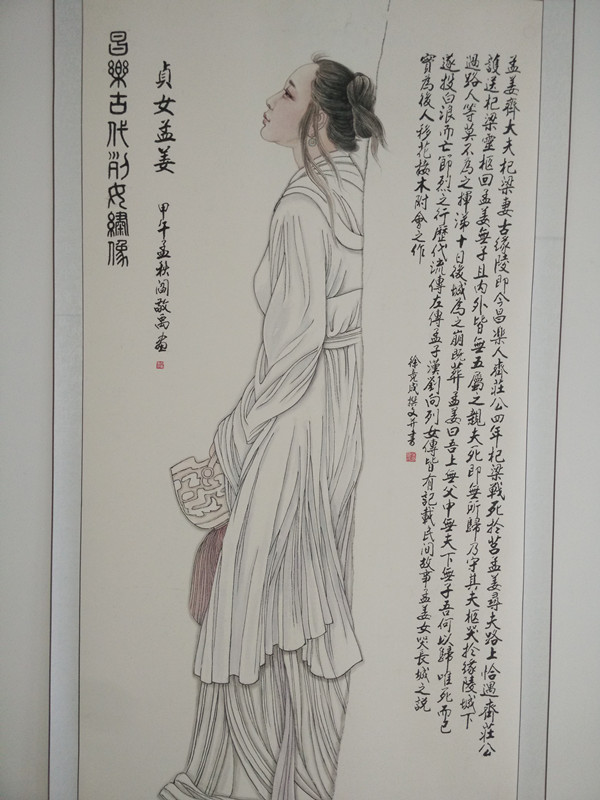 孟姜齊大夫杞梁妻古緣陵即今昌樂人齊莊公四年杞梁戰死於莒孟姜尋夫路上恰遇齊莊公
護送杞梁靈柩回孟姜無子且內外皆無五屬之親夫死即無所歸乃守其夫柩哭於緣陵城下
過路人等莫不為之揮涕十日後城為之崩既葬孟姜曰吾上無父中無夫下無子吾何以歸唯死而已
遂投白浪而亡即烈之行歷代流傳左傳孟子漢劉向列女傳皆有記載民間故事孟姜女哭長城之説
實為後人移花接木附會之作
徐竟成撰文并書
貞女孟姜
甲午孟秋閻敬禹畫
昌樂古代列女繡像